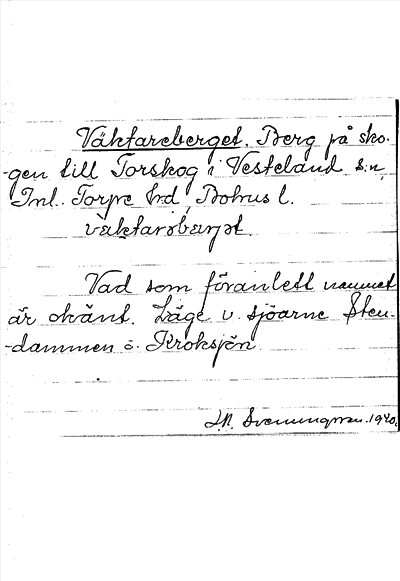 Väktareberget. Berg på sko-
gen till Torskog i Västerland s:n,
Inl. Torpe hd, Bohus l.
väktarsbärjət.
Vad som föranlett namnet
är okänt. Läge v. sjöarne Sten-
-dammen o. Kroksjön.
J.A. Svenningsson. 1940.